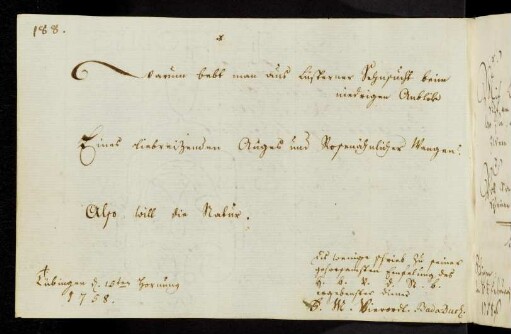 188.
Warum bebt man aus lüsterner Sehnsucht beim
niedrigen Anblick
Eines liebreizenden Auges und Rosenähnlicher Wangen?
Also will die Natur.
Tübingen d. 10ten Hornung
1758.
Dis wenige schrieb zu seiner
gehorsamsten Empfelung des
H. B. d. St. B.
ergebenster Diener
Vierordt. BadaDurl.